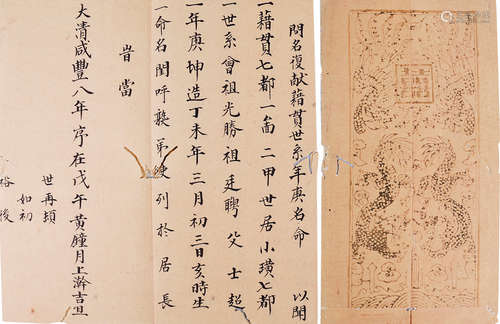 問名復献藉貫世系年庚名命 以聞
一藉貫七都一啚二甲世居小璜七都
一世系會祖光勝祖廷聘父士超
一年庚坤造丁未年三月初三日亥時生
一命名閨呼 弟 列於居長
旹當
大清咸豐八年序在戊午黃鐘月上澣吉旦
世再頓
如初
裕後